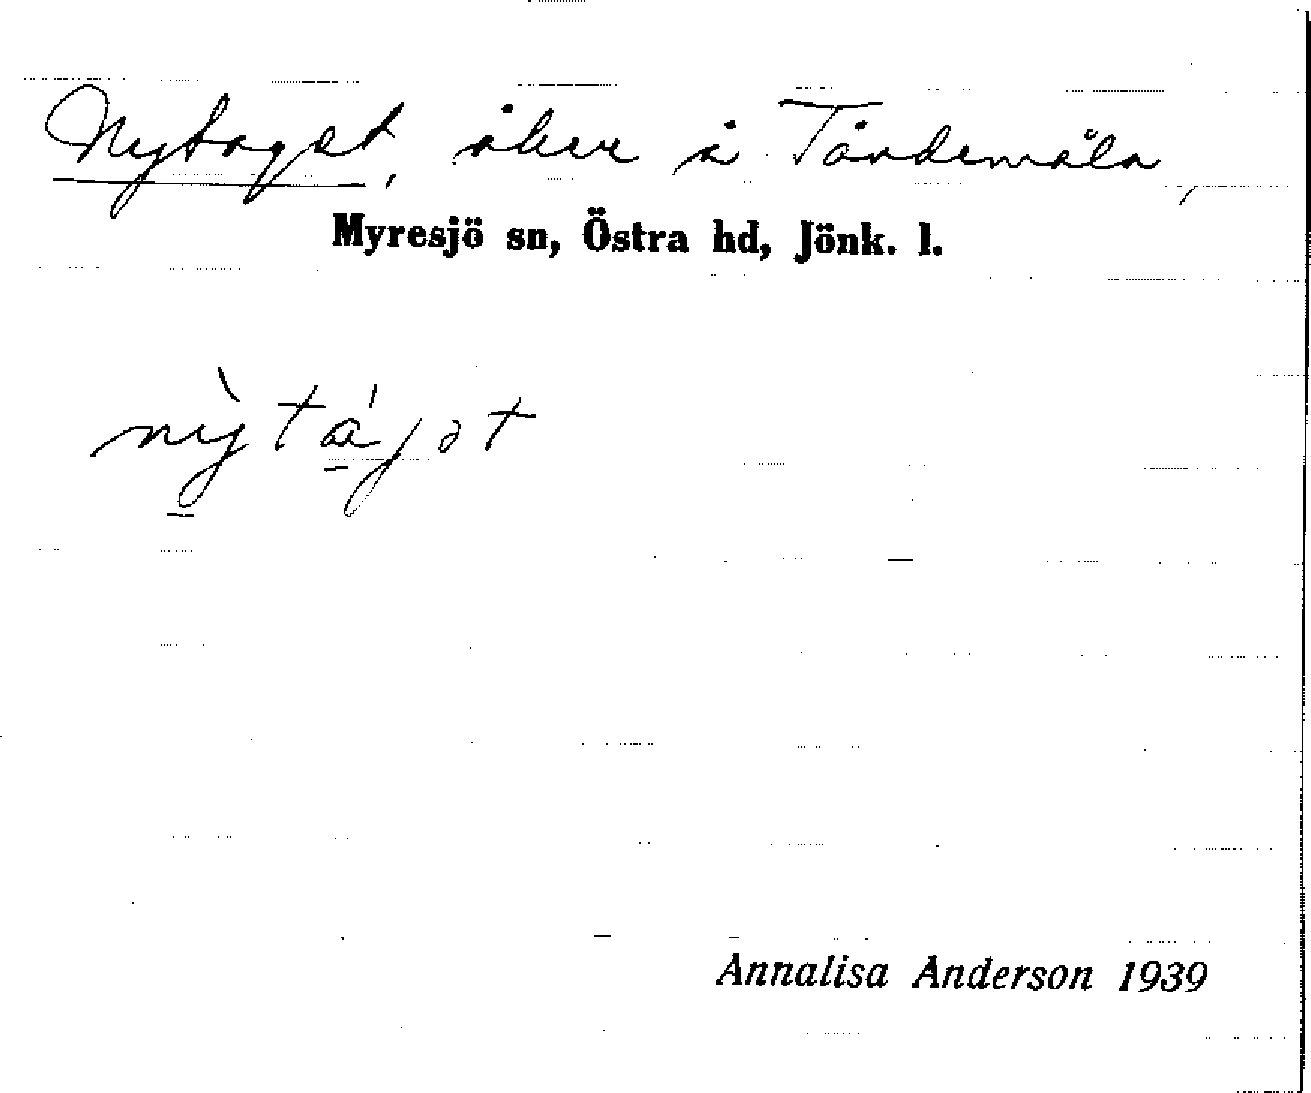 Nytaget, åker å Tåndemåla,
Myresjö sn, Östra hd, Jönk. l.
nỳtáɡət
Annalisa Anderson 1939